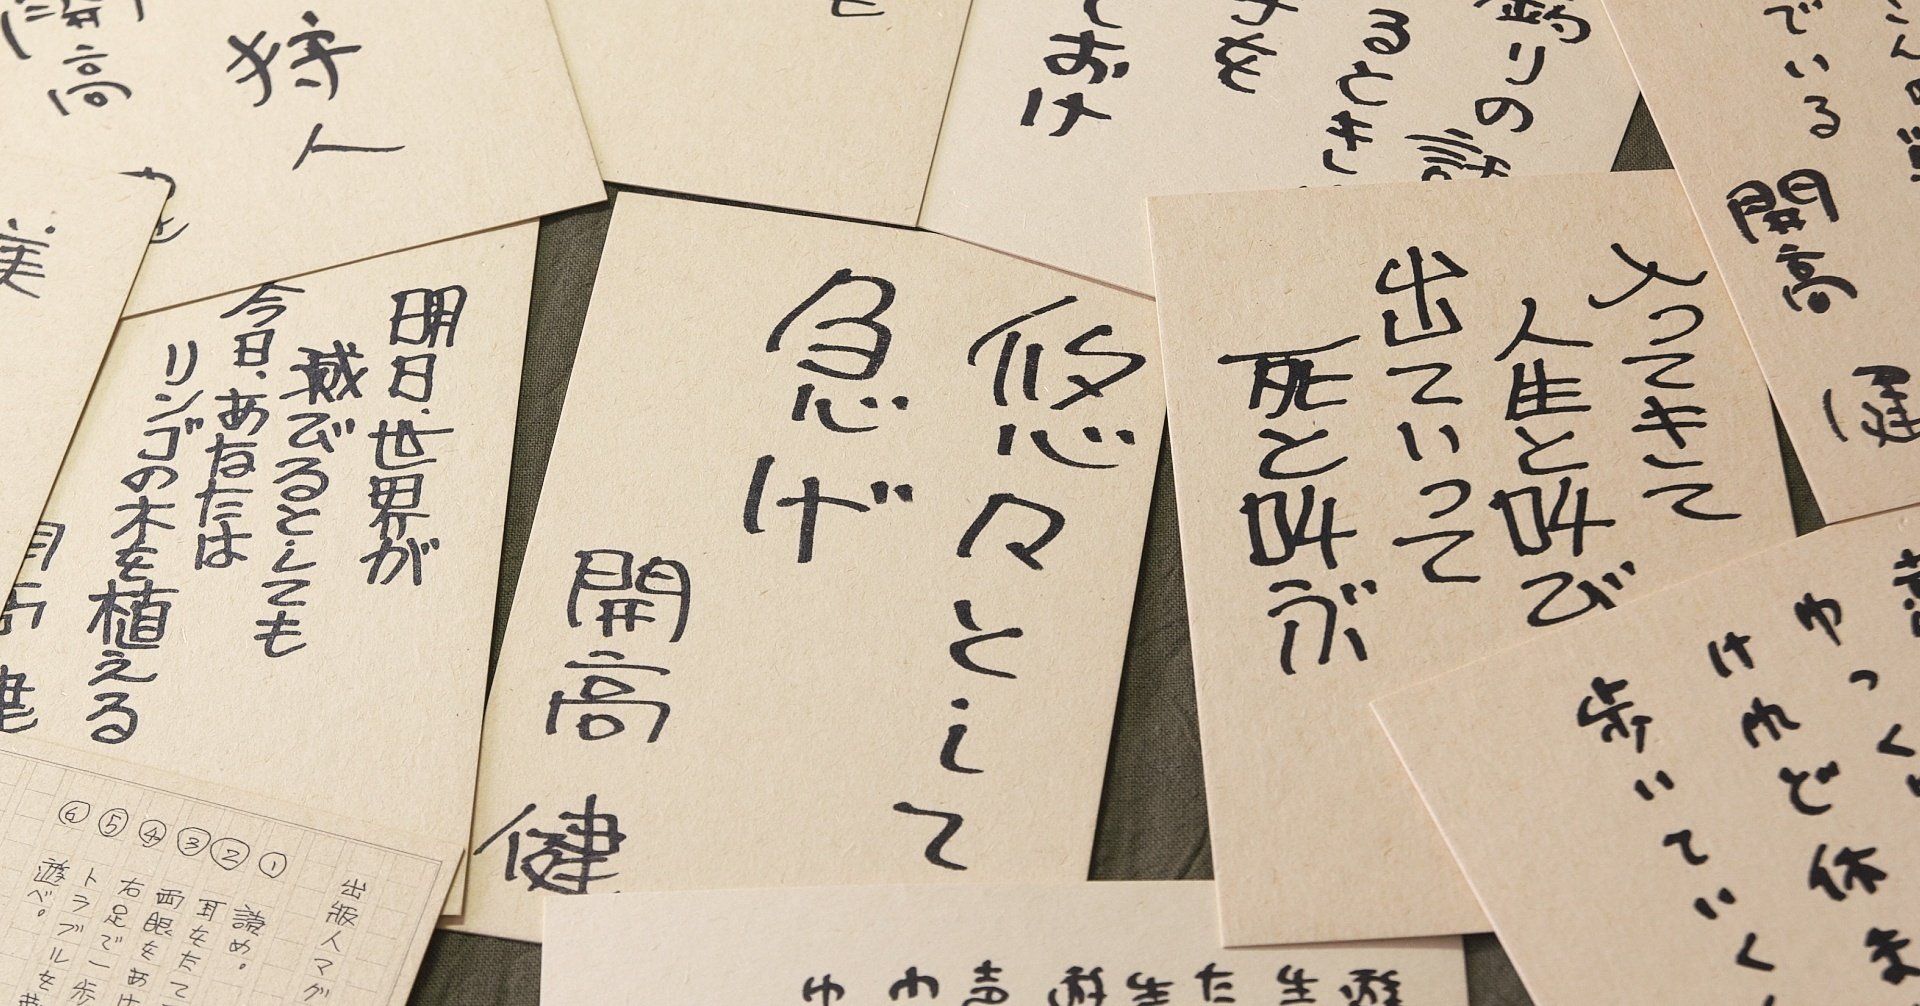 狩人
開高
ておけ
るとき
釣りの話
でいる
開高
健
明日、世界が
滅びるとしても
今日、あなたは
リンゴの木を植える
悠々として
急げ
開高
健
入ってきて
人生と叫び
出ていって
死と叫ぶ
ゆっく
けれど休ま
歩いていく
出版人マグ
① 読め。
② 耳をたて
③ 両眼をあけ
④ 右足で一歩
⑤ トラブルを
⑥ 遊べ。